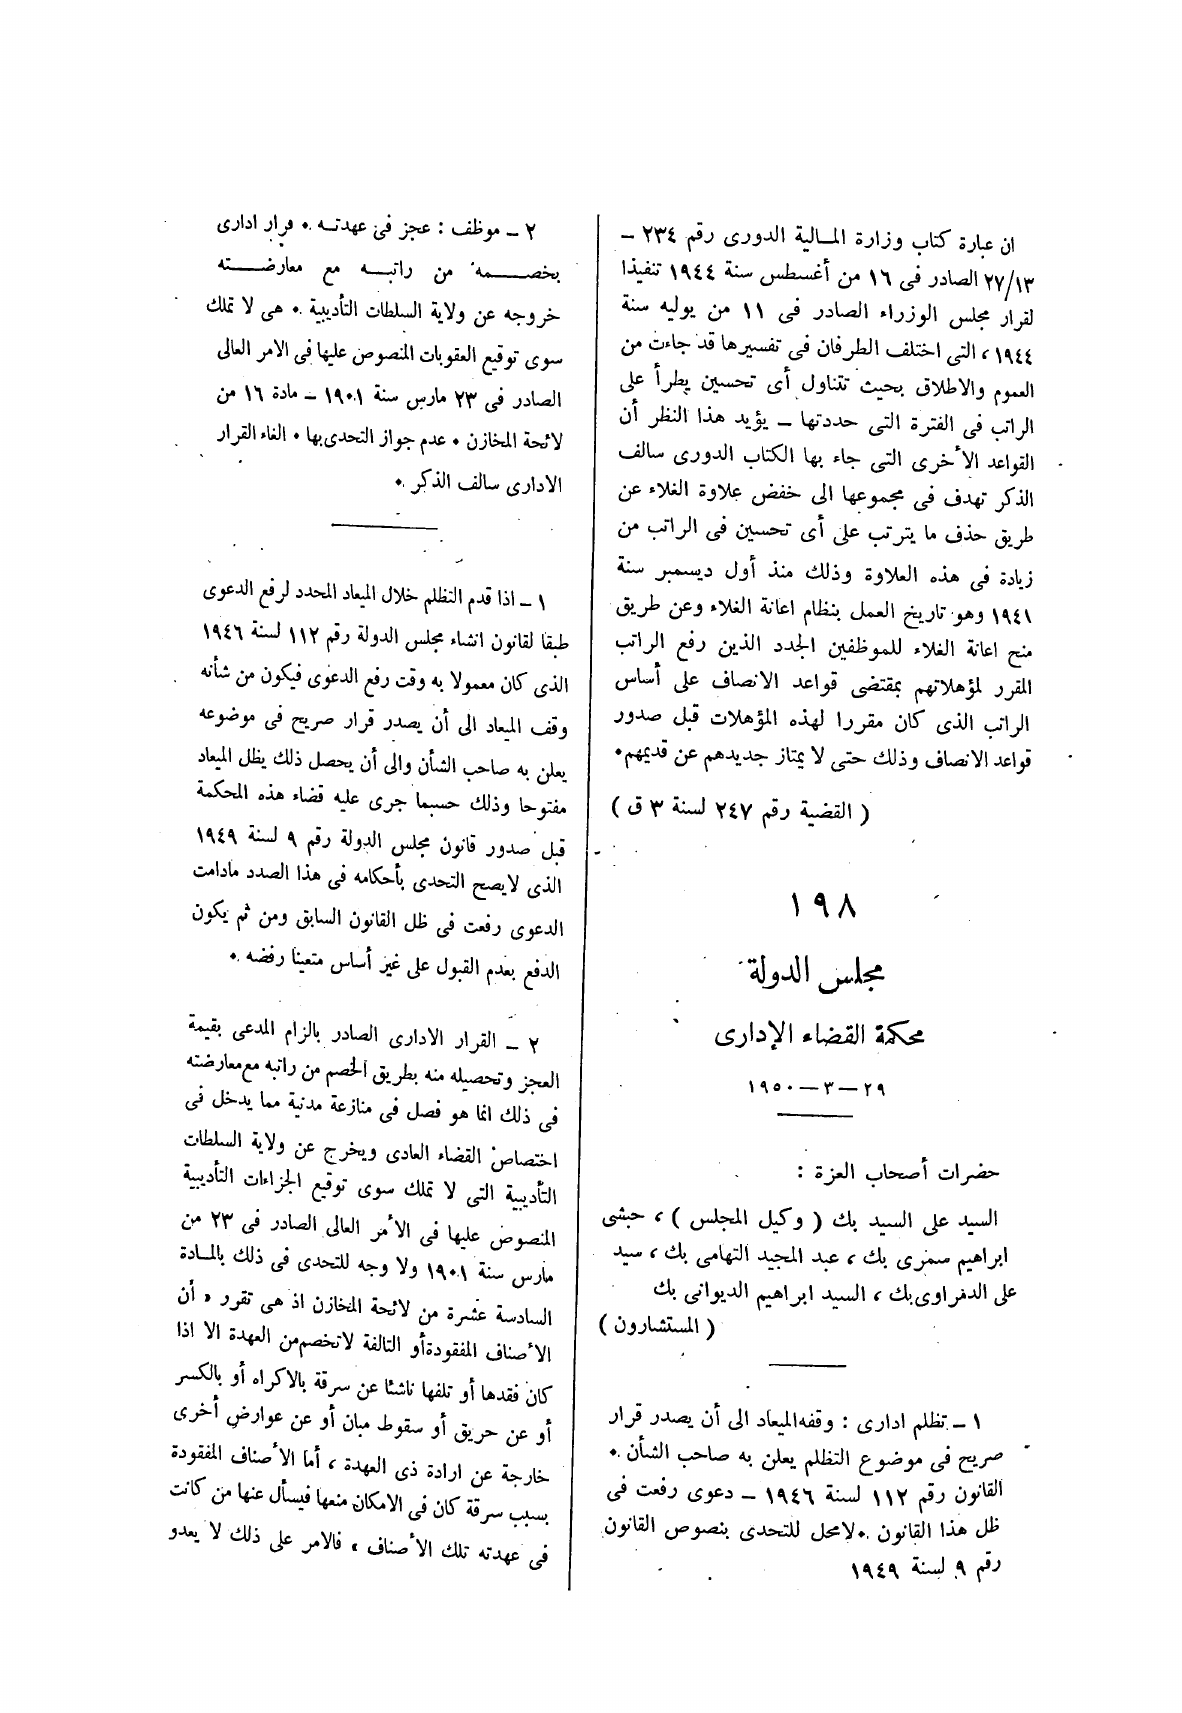 ان عبارة كتاب وزارة المالية الدورى رقم ٢٣٤ –
٢٧/١٣ الصادر فى ١٦ من أغسطس سنة ١٩٤٤ تنفيذا
لقرار مجلس الوزراء الصادر فى ١١ من يوليه سنة
١٩٤٤، التى اختلف الطرفان فى تفسيرها قد جاءت من
العموم والاطلاق بحيث تتناول أى تحسين يطرأ على
الراتب فى الفترة التى حددتها – يؤيد هذا النظر أن
القواعد الأخرى التى جاء بها الكتاب الدورى سالف
الذكر تهدف فى مجموعها الى خفض علاوة الغلاء عن
طريق حذف ما يترتب على أى تحسين فى الراتب من
زيادة فى هذه العلاوة وذلك منذ أول ديسمبر سنة
١٩٤١ وهو تاريخ العمل بنظام اعانة الغلاء وعن طريق
منح اعانة الغلاء للموظفين الجدد الذين رفع الراتب
المقرر لمؤهلاتهم بمقتضى قواعد الانصاف على أساس
الراتب الذى كان مقررا لهذه المؤهلات قبل صدور
قواعد الانصاف وذلك حتى لا يمتاز جديدهم عن قديمهم.
( القضية رقم ٢٤٧ لسنة ٣ ق )
١٩٨
مجلس الدولة
محكمة القضاء الإدارى
٢٩ – ٣ – ١٩٥٠
حضرات أصحاب العزة :
السيد على السيد بك ( وكيل المجلس ) ، حبشى
ابراهيم سمرى بك ، عبد المجيد التهامى بك ، سيد
على الدمراوى بك ، السيد ابراهيم الديوانى بك
( المستشارون )
١ – تظلم ادارى : وقفه الميعاد الى أن يصدر قرار
صريح فى موضوع التظلم يعلن به صاحب الشأن .
القانون رقم ١١٢ لسنة ١٩٤٦ – دعوى رفعت فى
ظل هذا القانون . لامحل للتحدى بنصوص القانون
رقم ٩ لسنة ١٩٤٩
٢ – موظف : عجز فى عهدته . قرار ادارى
بخصمه من راتبه مع معارضته
خروجه عن ولاية السلطات التأديبية . هى لا تملك
سوى توقيع العقوبات المنصوص عليها فى الامر العالى
الصادر فى ٢٣ مارس سنة ١٩٠١ – مادة ١٦ من
لائحة المخازن . عدم جواز التحدى بها . الغاء القرار
الادارى سالف الذكر .
١ – اذا قدم التظلم خلال الميعاد المحدد لرفع الدعوى
طبقا لقانون انشاء مجلس الدولة رقم ١١٢ لسنة ١٩٤٦
الذى كان معمولا به وقت رفع الدعوى فيكون من شأنه
وقف الميعاد الى أن يصدر قرار صريح فى موضوعه
يعلن به صاحب الشأن والى أن يحصل ذلك يظل الميعاد
مفتوحا وذلك حسبما جرى عليه قضاء هذه المحكمة
قبل صدور قانون مجلس الدولة رقم ٩ لسنة ١٩٤٩
الذى لايصح التحدى بأحكامه فى هذا الصدد مادامت
الدعوى رفعت فى ظل القانون السابق ومن ثم يكون
الدفع بعدم القبول على غير أساس متعينا رفضه .
٢ – القرار الادارى الصادر بالزام المدعى بقيمة
العجز وتحصيله منه بطريق الخصم من راتبه مع معارضته
فى ذلك انما هو فصل فى منازعة مدنية مما يدخل فى
اختصاص القضاء العادى ويخرج عن ولاية السلطات
التأديبية التى لا تملك سوى توقيع الجزاءات التأديبية
المنصوص عليها فى الأمر العالى الصادر فى ٢٣ من
مارس سنة ١٩٠١ ولا وجه للتحدى فى ذلك بالمادة
السادسة عشرة من لائحة المخازن اذ هى تقرر « أن
الأصناف المفقودة أو التالفة لاتخصم من العهدة الا اذا
كان فقدها أو تلفها ناشئا عن سرقة بالاكراه أو بالكسر
أو عن حريق أو سقوط مبان أو عن عوارض أخرى
خارجة عن ارادة ذى العهدة ، أما الأصناف المفقودة
بسبب سرقة كان فى الامكان منعها فيسأل عنها من كانت
فى عهدته تلك الأصناف » فالامر على ذلك لا يعدو